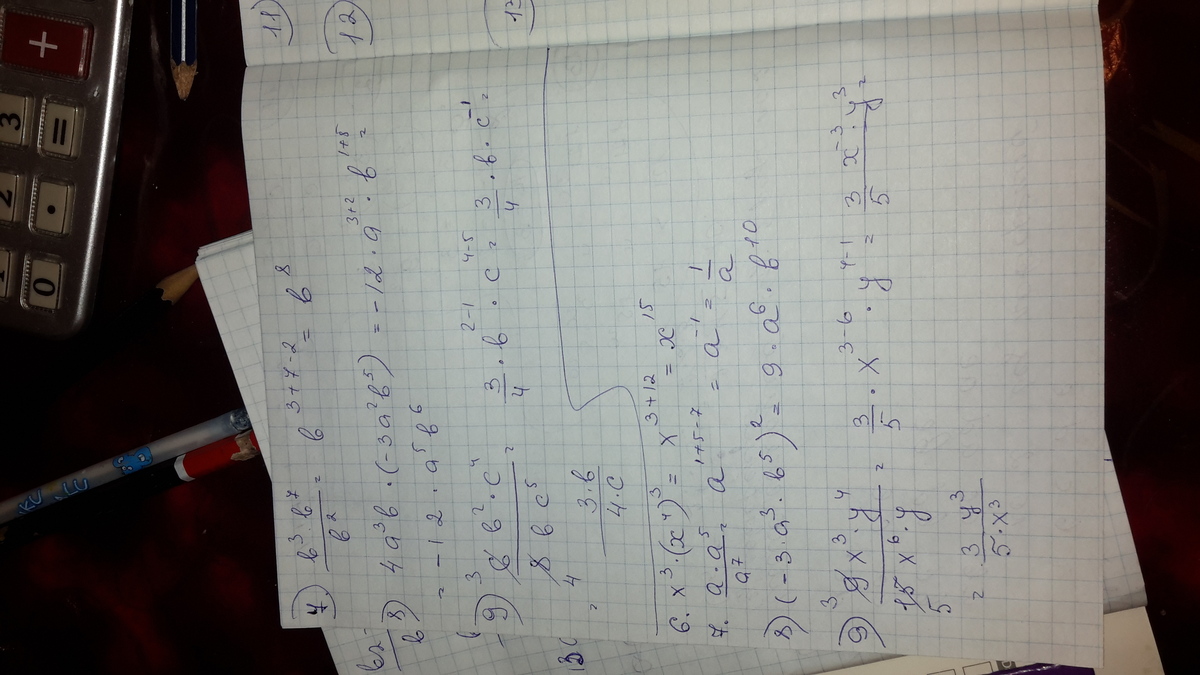 7) b³·b⁷/b² = b³⁺⁷⁻² = b⁸
8) 4a³b·(-3a²b⁵) = -12·a³⁺²·b¹⁺⁵ =
= -12·a⁵b⁶
9) 6b²·c⁴/8bc⁵ = 3/4·b²⁻¹·c⁴⁻⁵ = 3/4·b·c⁻¹ =
= 3·b/4·c
6. x³·(x⁴)³ = x³⁺¹² = x¹⁵
7. a·a⁵/a⁷ = a¹⁺⁵⁻⁷ = a⁻¹ = 1/a
8) (-3·a³·b⁵)² = 9·a⁶·b¹⁰
9) 9x³·y⁴/15x⁶·y = 3/5·x³⁻⁶·y⁴⁻¹ = 3x⁻³·y³/5 =
= 3y³/5·x³
11)
12)
13
+
3
=
2
.
1
0
KC
KC